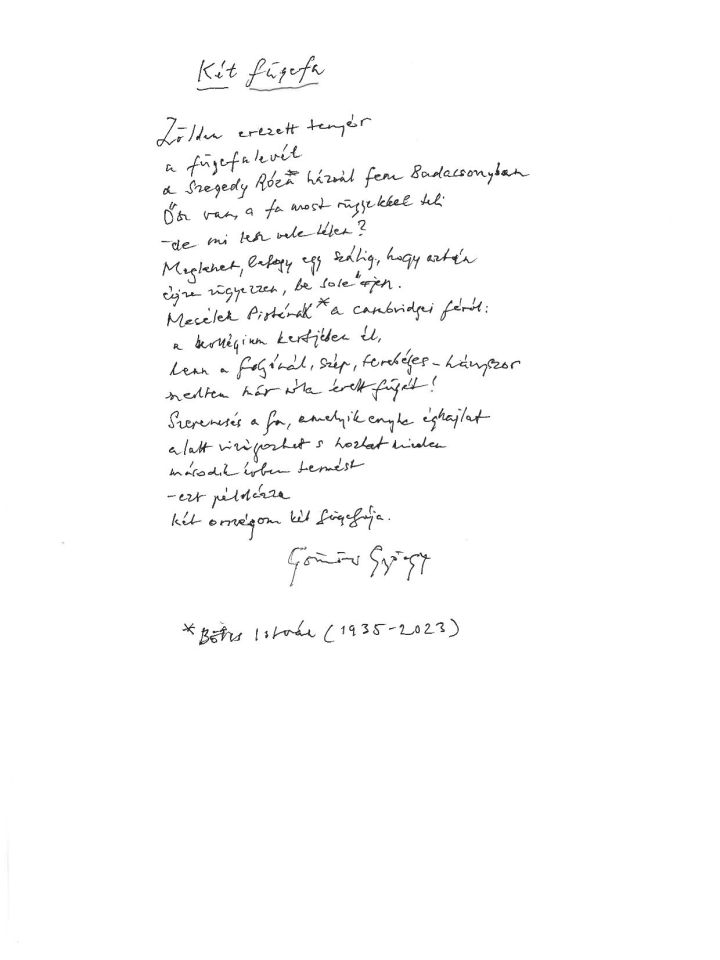 Két fügefa
Zölden erezett tenyér
a fügefalevél
a Szegedy Róza háznál fenn Badacsonyban
Ősz van, a fa most rügyekkel teli
-de mi lesz vele télen?
Meglehet, lefagy egy szálig, hogy aztán
újra rügyezzen, be
Mesélek Pistának* a cambridgei fáról:
a kollégium kertjében él,
lenn a folyónál, szép, terebélyes - hányszor
szedtem már róla érett fügét!
Szerencsés a fa, amelyik enyhe éghajlat
alatt vizigózhet s hozhat minden
második évben termést
-ezt példázza
két országom két fügefája.
Gömöri György
* István (1935-2023)